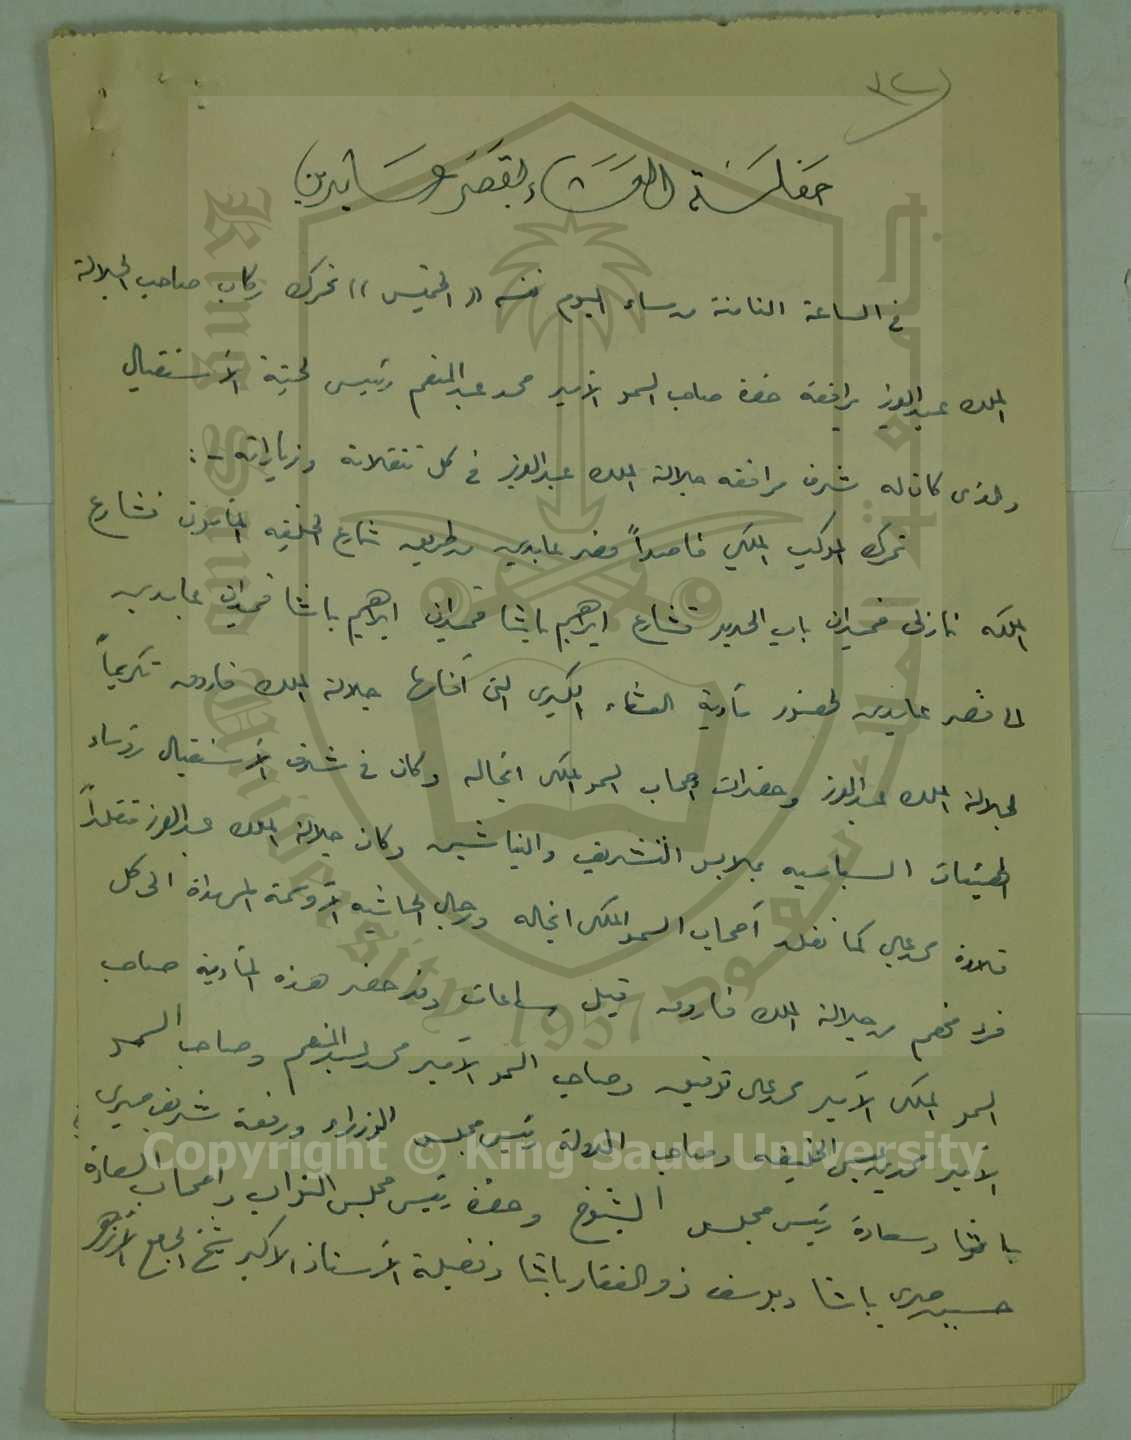 ٣٢
حفلة العشاء بقصر عابدين
في الساعة الثامنة من مساء اليوم نفسه (( الخميس )) تحرك ركاب صاحب الجلالة
الملك عبد العزيز يرافقه حضرة صاحب السمو الأمير محمد عبد المنعم رئيس لجنة الأستقبال
والذي كان له شرف مرافقة جلالة الملك عبد العزيز في كل تنقلاته وزياراته -:
تحرك الموكب الملكي قاصداً قصر عابدين من طريق شارع الخليفه المأمون فشارع
الملكه نازلي فميدان باب الحديد فشارع ابراهيم باشا فميدان ابراهيم باشا فميدان عابدين
الى قصر عابدين لحضور مأدبة العشاء الكبرى التي أقامها جلالة الملك فاروق تكريماً
لجلالة الملك عبد العزيز وحضرات اصحاب السمو الملكي انجاله وكان في شرف الأستقبال رؤساء
الهيئات السياسيه بملابس التشريف والنياشين وكان جلالة الملك عبد العزيز متقلداً
قلادة محمد علي كما تقلد أصحاب السمو الملكي انجاله ورجال الحاشيه الأوسمة المهداة الى كل
فرد منهم من جلالة الملك فاروق قبل ساعات وقد حضر هذه المأدبة صاحب
السمو الملكي الأمير محمد علي توفيق وصاحب السمو الأمير محمد عبد المنعم وصاحب السمو
الأمير محمد بن عيسى الخليفه وصاحب الدولة رئيس مجلس الوزراء ورفعة شريف صبري
باشا وسعادة رئيس مجلس الشيوخ وحضرة رئيس مجلس النواب واصحاب السعادة
حسين صبري باشا ويوسف ذو الفقار باشا وفضيلة الأستاذ الاكبر شيخ الجامع الأزهر
جامعة الملك سعود
King Saud University
1957
Copyright © King Saud University